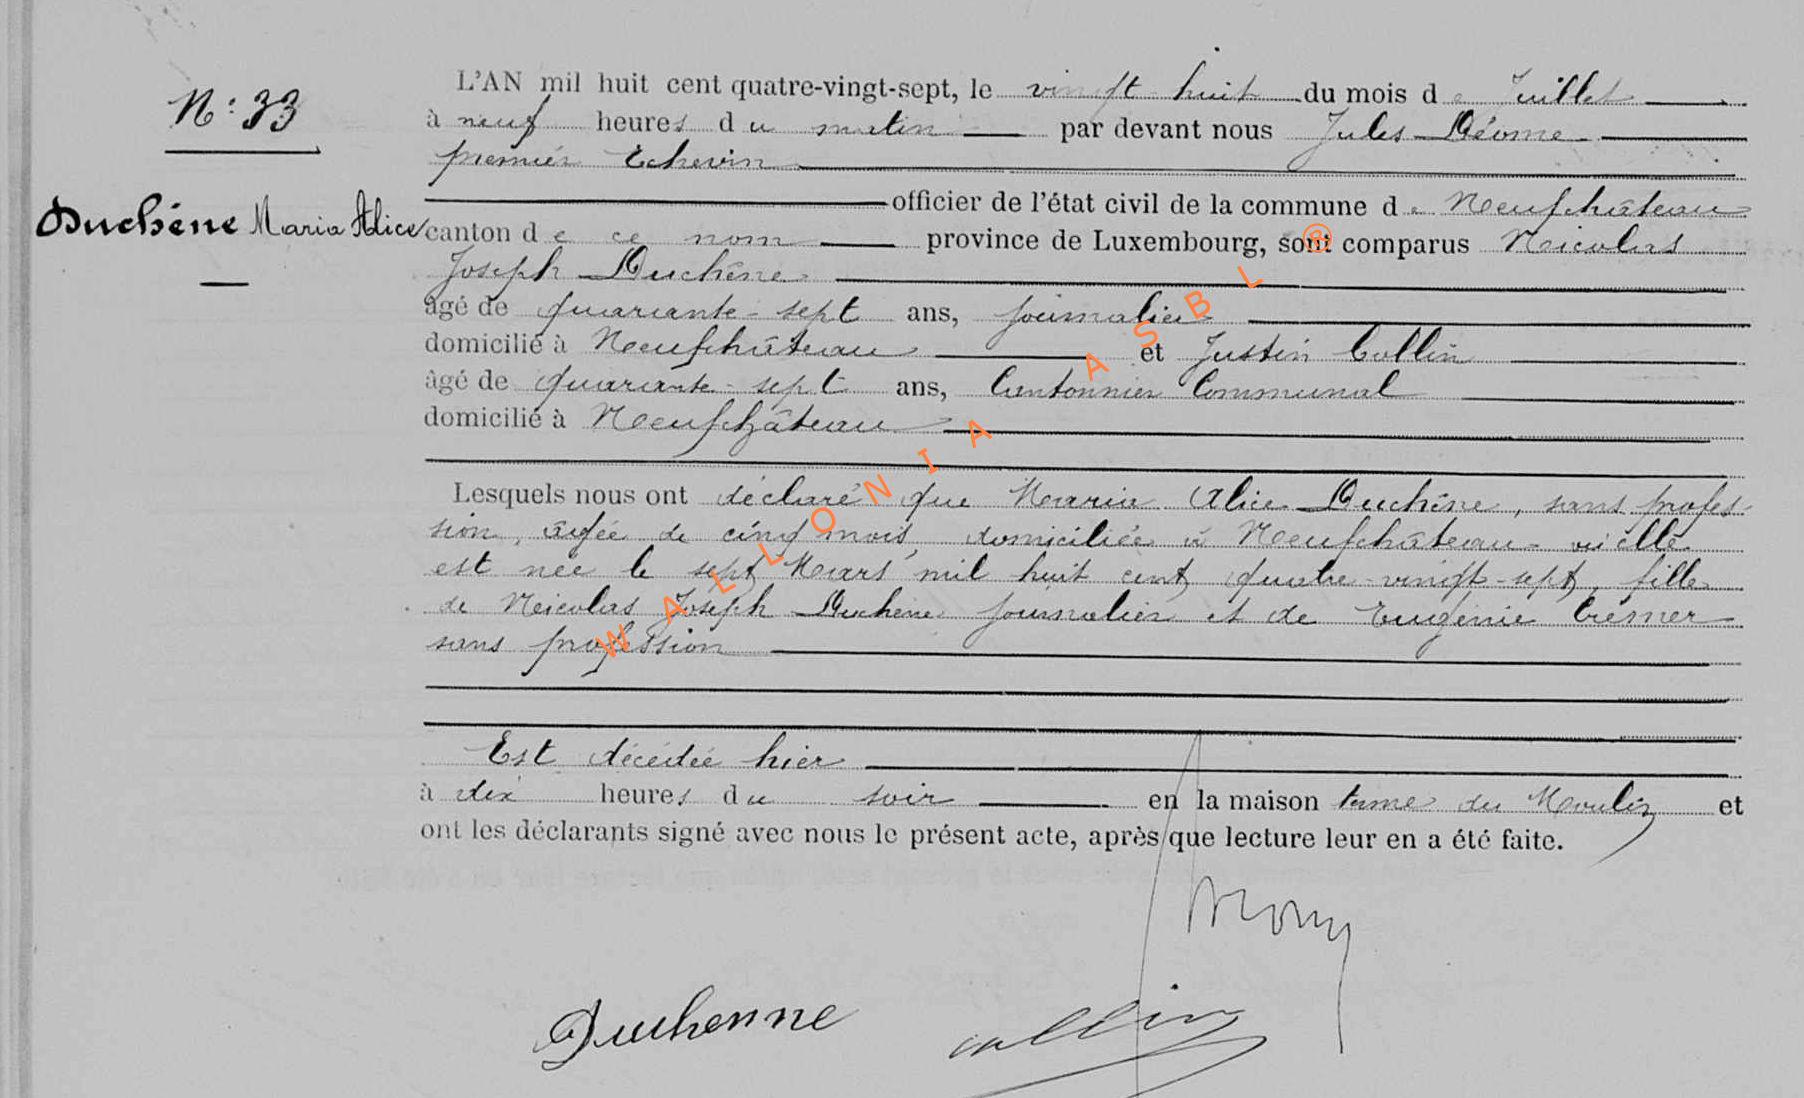 N: 33
Duchêne Maria Alice
L'AN mil huit cent quatre-vingt-sept, le vingt huit du mois de Juillet
à neuf heures du matin par devant nous Jules
premier Echevin
officier de l'état civil de la commune de Neufchâteau
canton de ce nom province de Luxembourg, sont comparus Nicolas
Joseph Duchêne
âgé de quarante-sept ans, journalier
domicilié à Neufchâteau et Justin Collin
âgé de quarante-sept ans, Cantonnier Communal
domicilié à Neufchâteau
Lesquels nous ont déclaré que Maria Alice Duchêne, sans profes-
sion, âgée de cinq mois, domiciliée à Neufchâteau où elle
est née le sept Mars mil huit cent quatre-vingt-sept, fille
de Nicolas Joseph Duchêne journalier et de Eugénie
sans profession
Est décédée hier
à dix heures du soir en la maison du Moulin et
ont les déclarants signé avec nous le présent acte, après que lecture leur en a été faite.
Duchenne
collin
WALLONIA ASBL ®